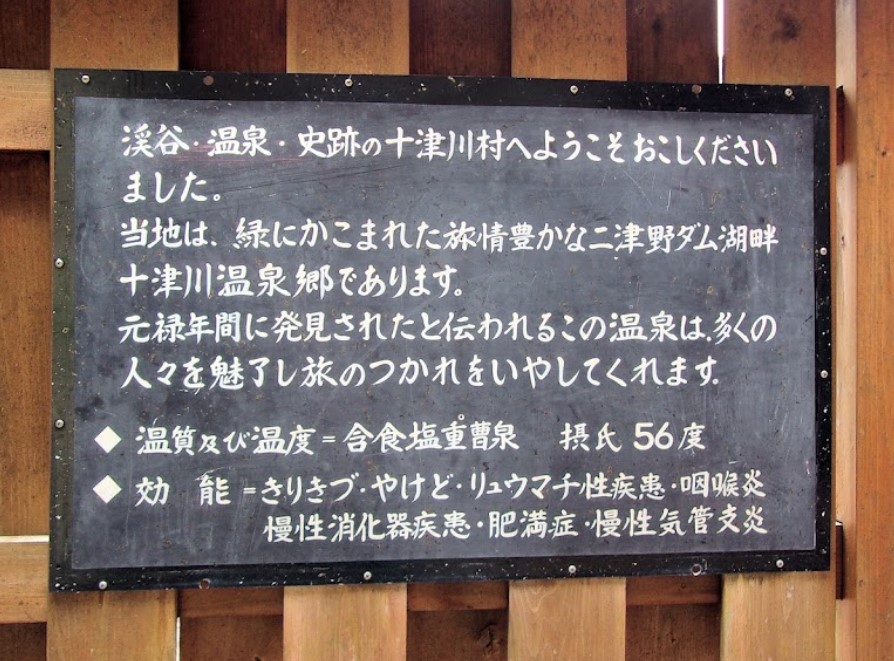 渓谷・温泉・史跡の十津川村へようこそおこしください
ました。
当地は、緑にかこまれた旅情豊かな二津野ダム湖畔
十津川温泉郷であります。
元禄年間に発見されたと伝われるこの温泉は、多くの
人々を魅了し旅のつかれをいやしてくれます。
◆ 温質及び温度=含食塩重曹泉 摂氏 56度
◆ 効 能=きりきづ・やけど・リュウマチ性疾患・咽喉炎
慢性消化器疾患・肥満症・慢性気管支炎